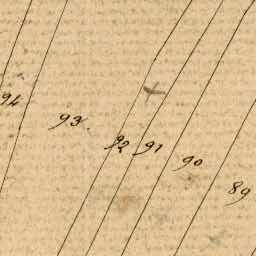 94
93.
92
91
90
89